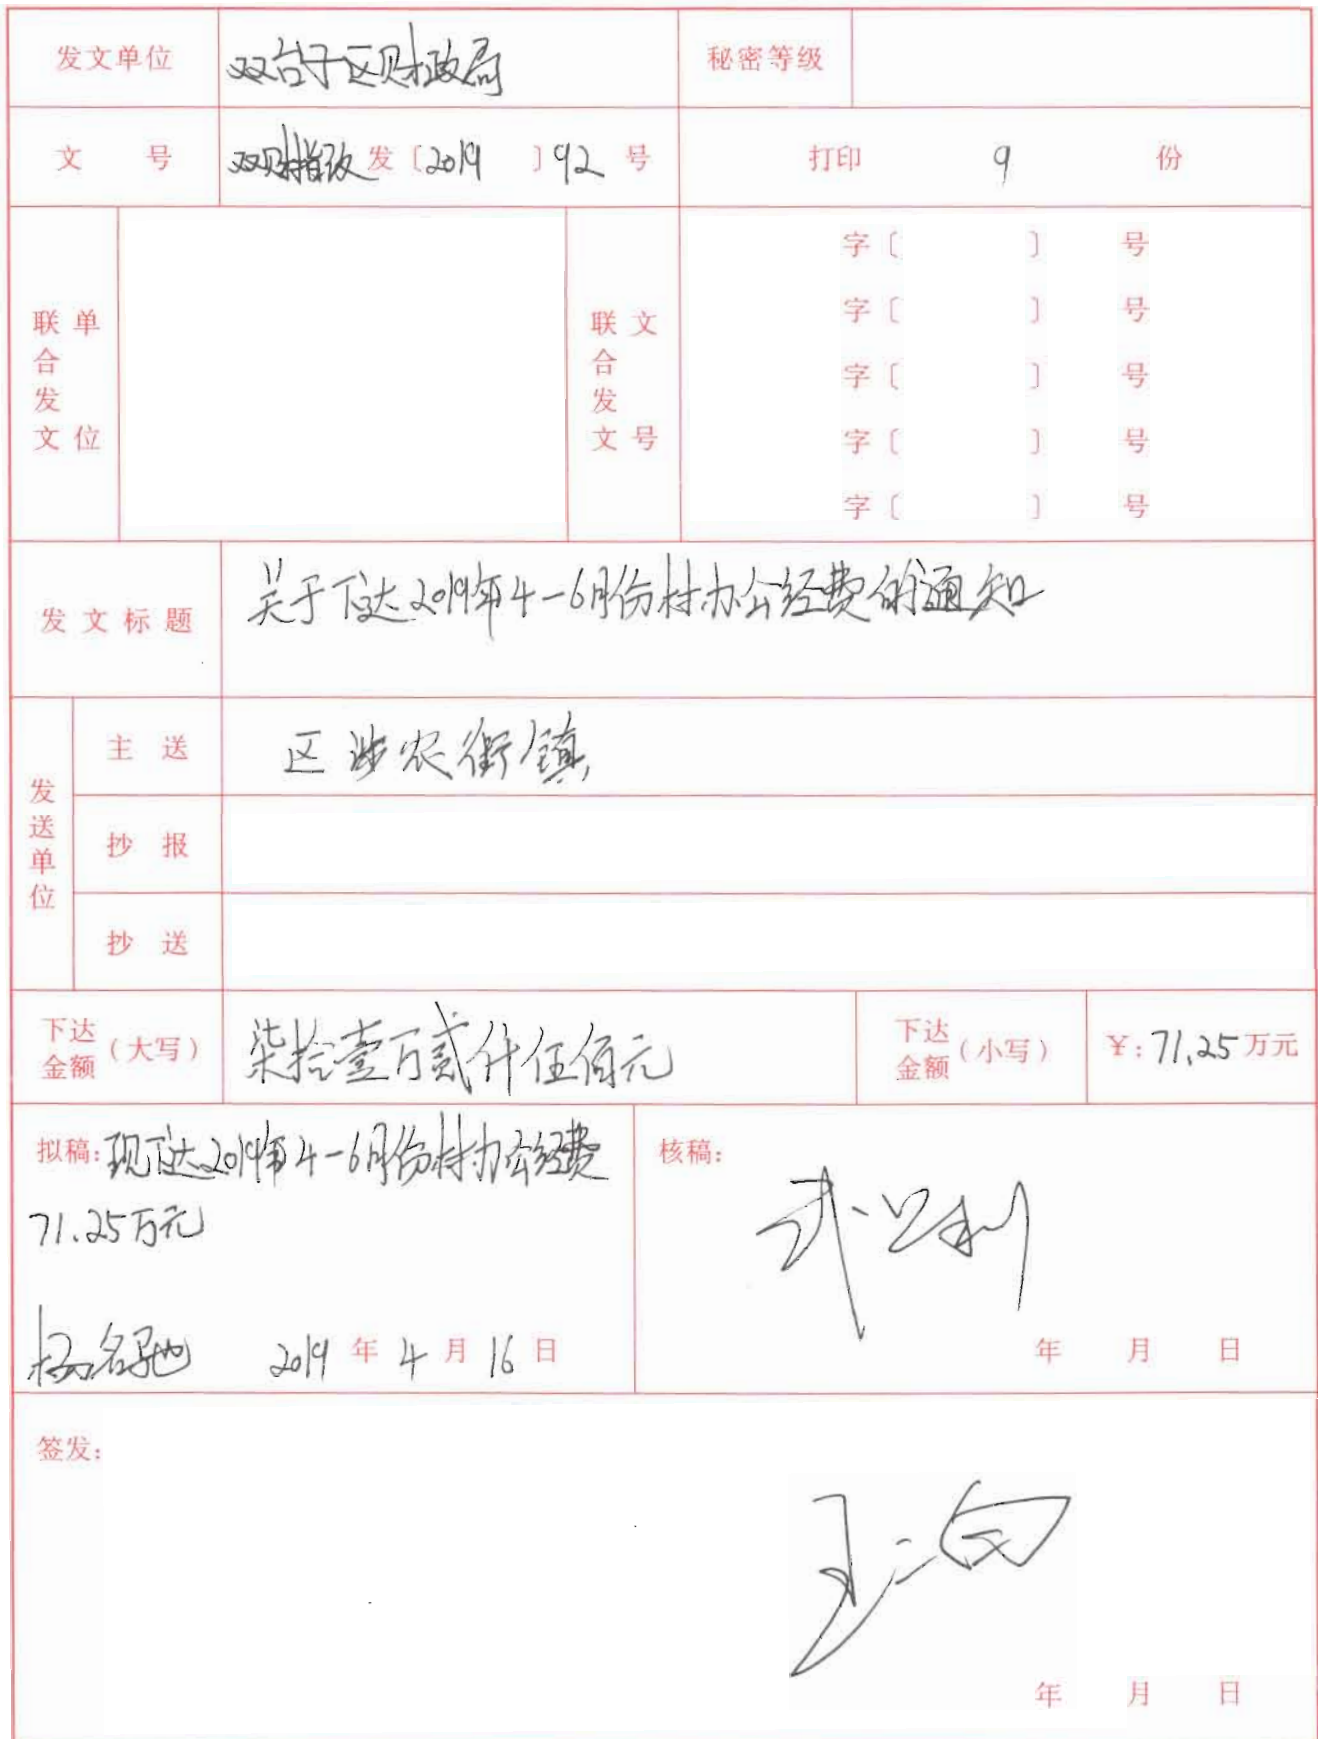 发文单位 双台子区财政局 秘密等级
文 号 双财指预 发〔2019 〕92 号 打印 9 份
联合发文单位 联合发文文号
字〔 〕 号
字〔 〕 号
字〔 〕 号
字〔 〕 号
字〔 〕 号
发文标题 关于下达2019年4-6月份村办公经费的通知
发送单位
主 送 区涉农街镇
抄 报
抄 送
下达金额（大写） 柒拾壹万贰仟伍佰元 下达金额（小写） ￥：71.25万元
拟稿：现下达2019年4-6月份村办公经费
71.25万元
杨名驰 2019 年 4 月 16 日
核稿：
年 月 日
签发：
年 月 日